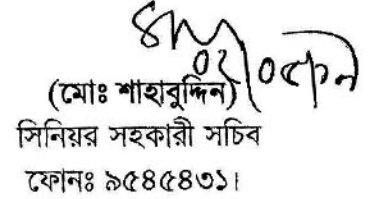 (মোঃ শাহাবুদ্দিন)
সিনিয়র সহকারী সচিব
ফোনঃ ৯৫৪৫৪৩১।